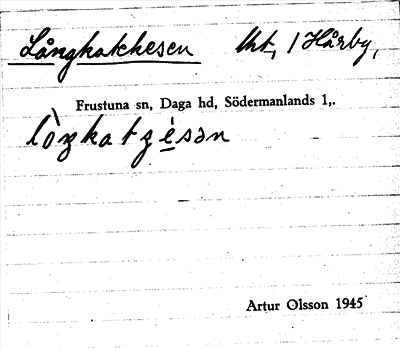 Långkatkesen Urt, 1 Hårby,
Frustuna sn, Daga hd, Södermanlands l,.
lòŋkatʒésən
Artur Olsson 1945